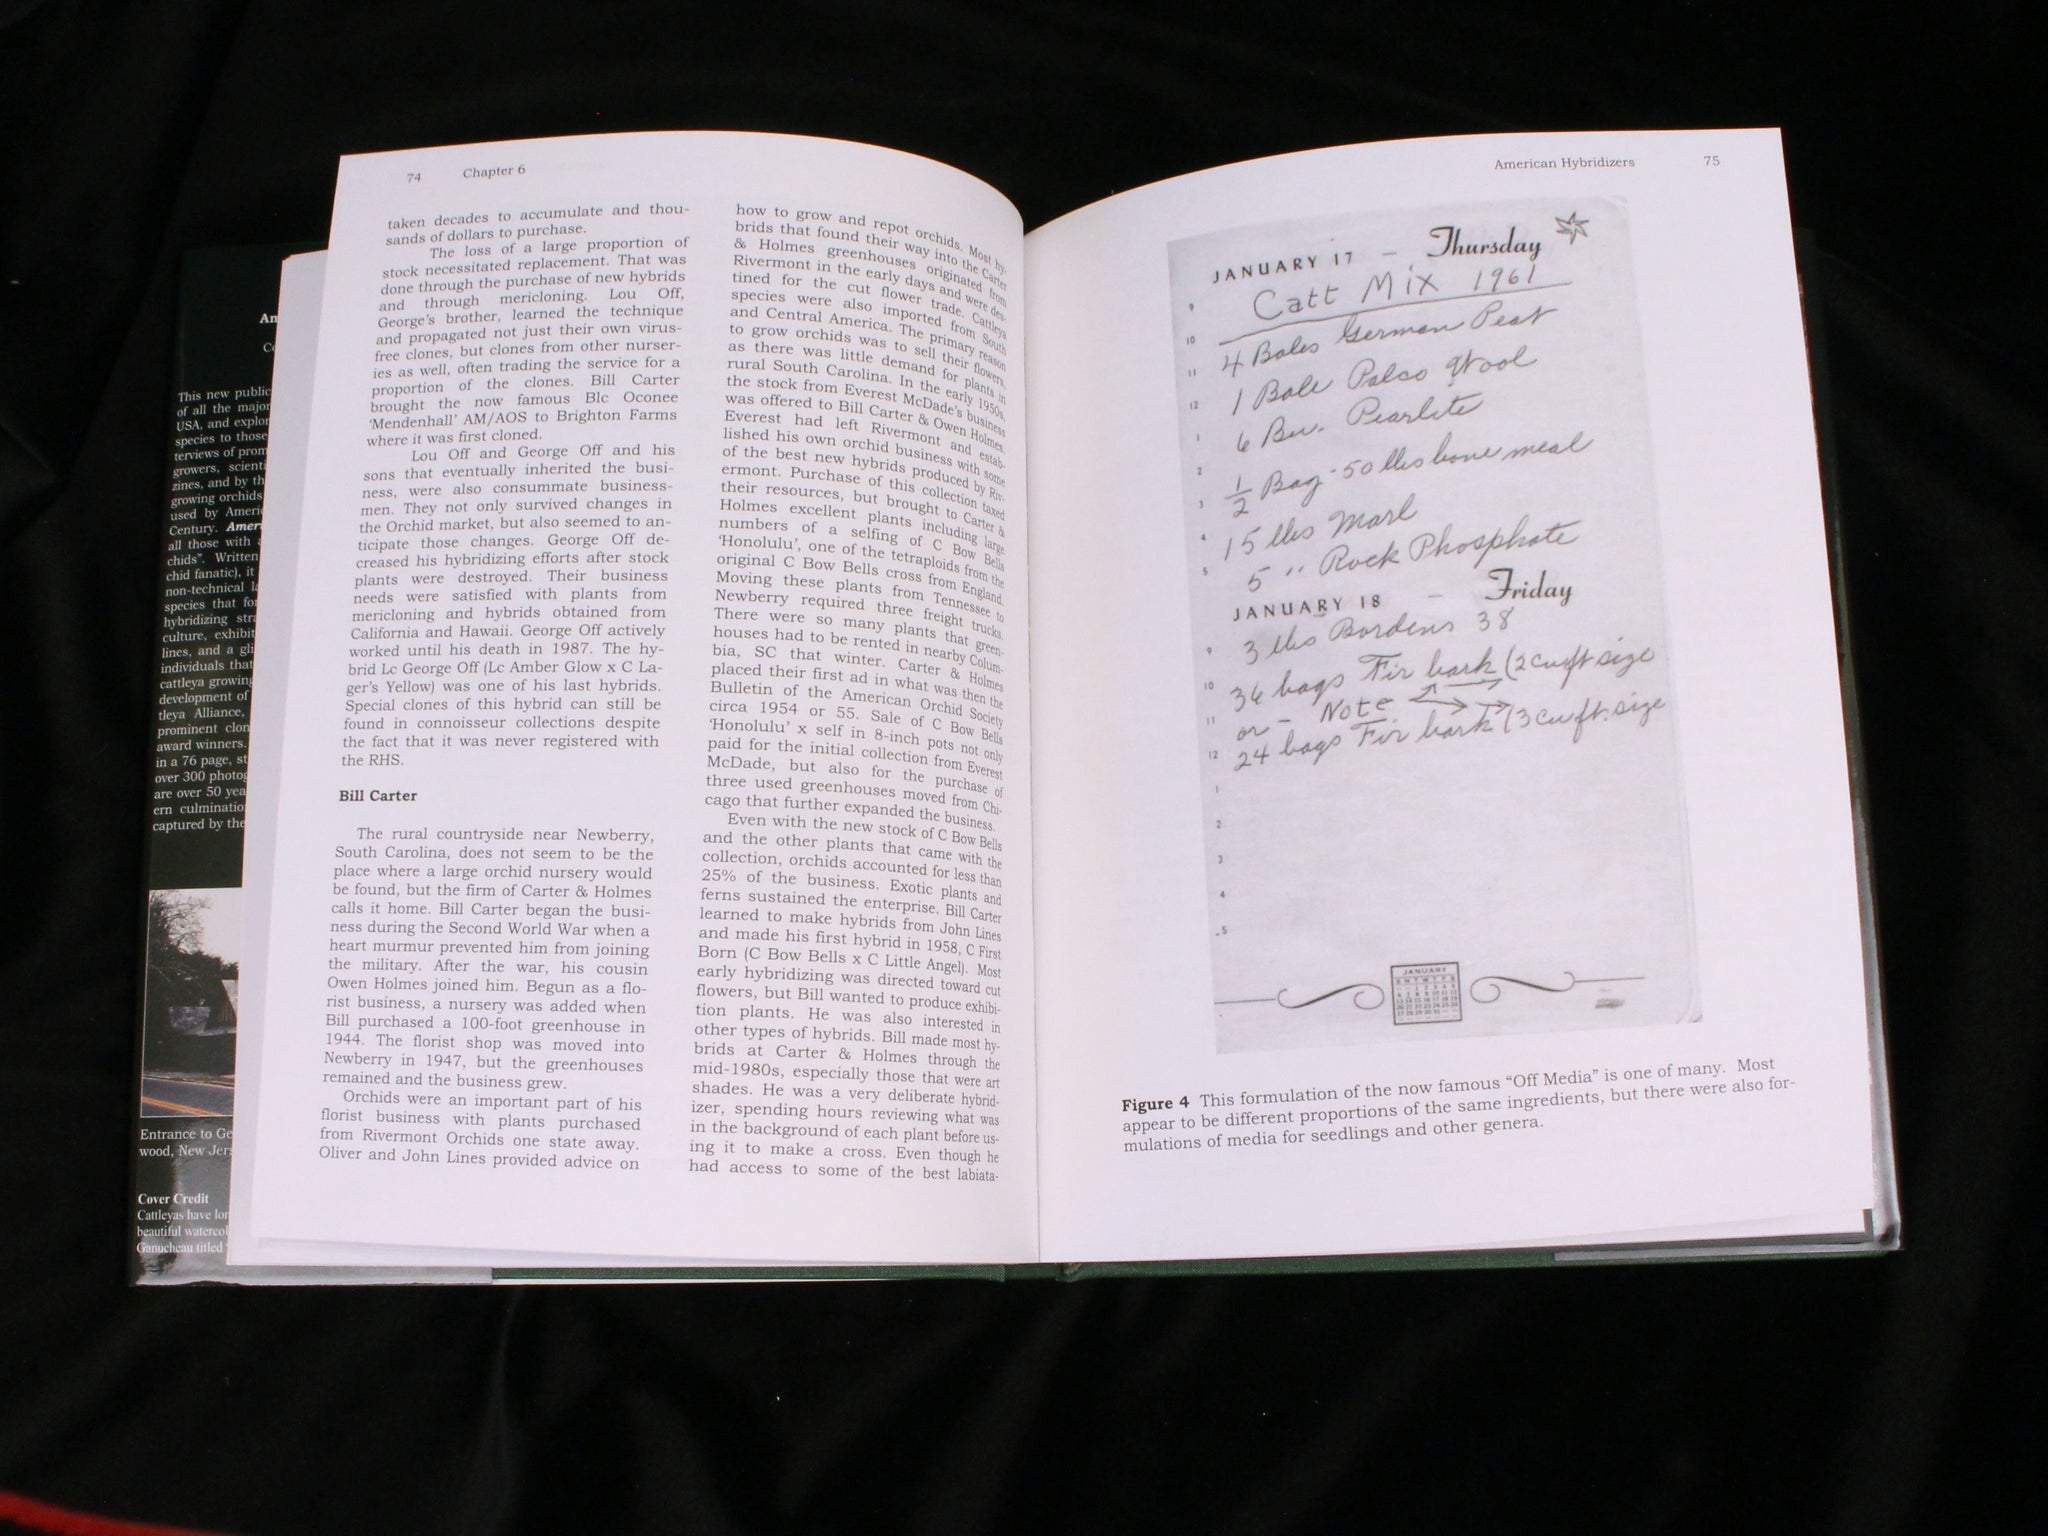 An
Co
This new public
of all the major
USA, and explor
species to those
terviews of prom
growers, scienti
zines, and by th
growing orchids
used by Americ
Century. Ameri
all those with a
chids". Written
chid fanatic), it
non-technical la
species that for
hybridizing stra
culture, exhibit
lines, and a gli
individuals that
cattleya growing
development of
tleya Alliance,
prominent clon
award winners.
in a 76 page, st
over 300 photog
are over 50 yea
ern culminatio
captured by the
Entrance to Ge
wood, New Jers
Cover Credit
Cattleyas have lon
beautiful watercol
Ganucheau titled
74 Chapter 6
taken decades to accumulate and thou-
sands of dollars to purchase.
The loss of a large proportion of
stock necessitated replacement. That was
done through the purchase of new hybrids
and through mericloning. Lou Off,
George's brother, learned the technique
and propagated not just their own virus-
free clones, but clones from other nurser-
ies as well, often trading the service for a
proportion of the clones. Bill Carter
brought the now famous Blc Oconee
'Mendenhall' AM/AOS to Brighton Farms
where it was first cloned.
Lou Off and George Off and his
sons that eventually inherited the busi-
ness, were also consummate business-
men. They not only survived changes in
the Orchid market, but also seemed to an-
ticipate those changes. George Off de-
creased his hybridizing efforts after stock
plants were destroyed. Their business
needs were satisfied with plants from
mericloning and hybrids obtained from
California and Hawaii. George Off actively
worked until his death in 1987. The hy-
brid Lc George Off (Lc Amber Glow x C La-
ger's Yellow) was one of his last hybrids.
Special clones of this hybrid can still be
found in connoisseur collections despite
the fact that it was never registered with
the RHS.
Bill Carter
The rural countryside near Newberry,
South Carolina, does not seem to be the
place where a large orchid nursery would
be found, but the firm of Carter & Holmes
calls it home. Bill Carter began the busi-
ness during the Second World War when a
heart murmur prevented him from joining
the military. After the war, his cousin
Owen Holmes joined him. Begun as a flo-
rist business, a nursery was added when
Bill purchased a 100-foot greenhouse in
1944. The florist shop was moved into
Newberry in 1947, but the greenhouses
remained and the business grew.
Orchids were an important part of his
florist business with plants purchased
from Rivermont Orchids one state away.
Oliver and John Lines provided advice on
how to grow and repot orchids. Most hy-
brids that found their way into the Carter
& Holmes greenhouses originated from
Rivermont in the early days and were des-
tined for the cut flower trade. Cattleya
species were also imported from South
and Central America. The primary reason
to grow orchids was to sell their flowers,
as there was little demand for plants in
rural South Carolina. In the early 1950s,
the stock from Everest McDade's business
was offered to Bill Carter & Owen Holmes.
Everest had left Rivermont and estab-
lished his own orchid business with some
of the best new hybrids produced by Riv-
ermont. Purchase of this collection taxed
their resources, but brought to Carter &
Holmes excellent plants including large
numbers of a selfing of C Bow Bells
'Honolulu', one of the tetraploids from the
original C Bow Bells cross from England.
Moving these plants from Tennessee to
Newberry required three freight trucks.
There were so many plants that green-
houses had to be rented in nearby Colum-
bia, SC that winter. Carter & Holmes
placed their first ad in what was then the
Bulletin of the American Orchid Society
circa 1954 or 55. Sale of C Bow Bells
'Honolulu' x self in 8-inch pots not only
paid for the initial collection from Everest
McDade, but also for the purchase of
three used greenhouses moved from Chi-
cago that further expanded the business.
Even with the new stock of C Bow Bells
and the other plants that came with the
collection, orchids accounted for less than
25% of the business. Exotic plants and
ferns sustained the enterprise. Bill Carter
learned to make hybrids from John Lines
and made his first hybrid in 1958, C First
Born (C Bow Bells x C Little Angel). Most
early hybridizing was directed toward cut
flowers, but Bill wanted to produce exhibi-
tion plants. He was also interested in
other types of hybrids. Bill made most hy-
brids at Carter & Holmes through the
mid-1980s, especially those that were art
shades. He was a very deliberate hybrid-
izer, spending hours reviewing what was
in the background of each plant before us-
ing it to make a cross. Even though he
had access to some of the best labiata-
American Hybridizers 75
JANUARY 17 – Thursday
9 Catt Mix 1961
10 4 Bales German Peat
11 1 Bale Palco Wool
12 6 Bu. Pearlite
1
2 1/2 Bag - 50 lbs bone meal
3
4 15 lbs Marl
5 5 " Rock Phosphate
JANUARY 18 – Friday
9 3 lbs Bordens 38
10 36 bags Fir bark (2 cu ft size
11 or – Note
12 24 bags Fir bark (3 cu ft. size
1
2
3
4
5
JANUARY
S M T W T F S
Figure 4 This formulation of the now famous "Off Media" is one of many. Most
appear to be different proportions of the same ingredients, but there were also for-
mulations of media for seedlings and other genera.